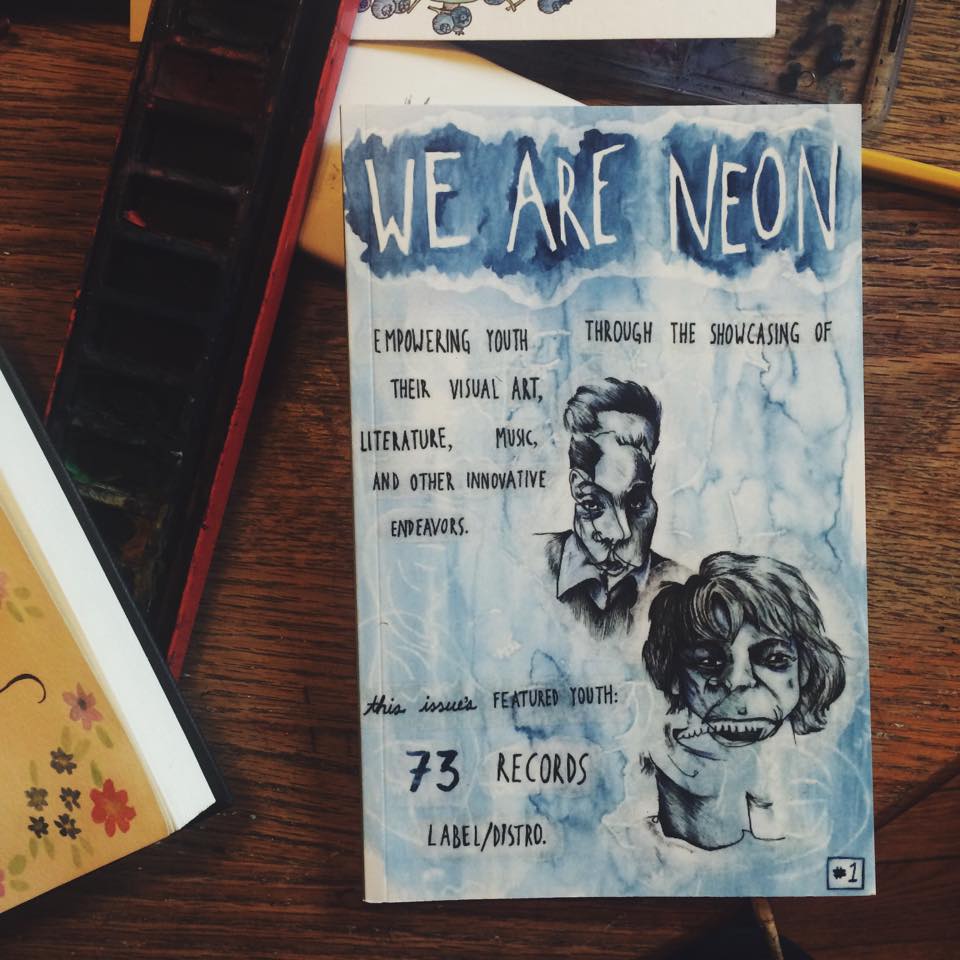 WE ARE NEON
EMPOWERING YOUTH THROUGH THE SHOWCASING OF
THEIR VISUAL ART,
LITERATURE, MUSIC,
AND OTHER INNOVATIVE
ENDEAVORS.
this issue's FEATURED YOUTH:
73 RECORDS
LABEL/DISTRO.
#1